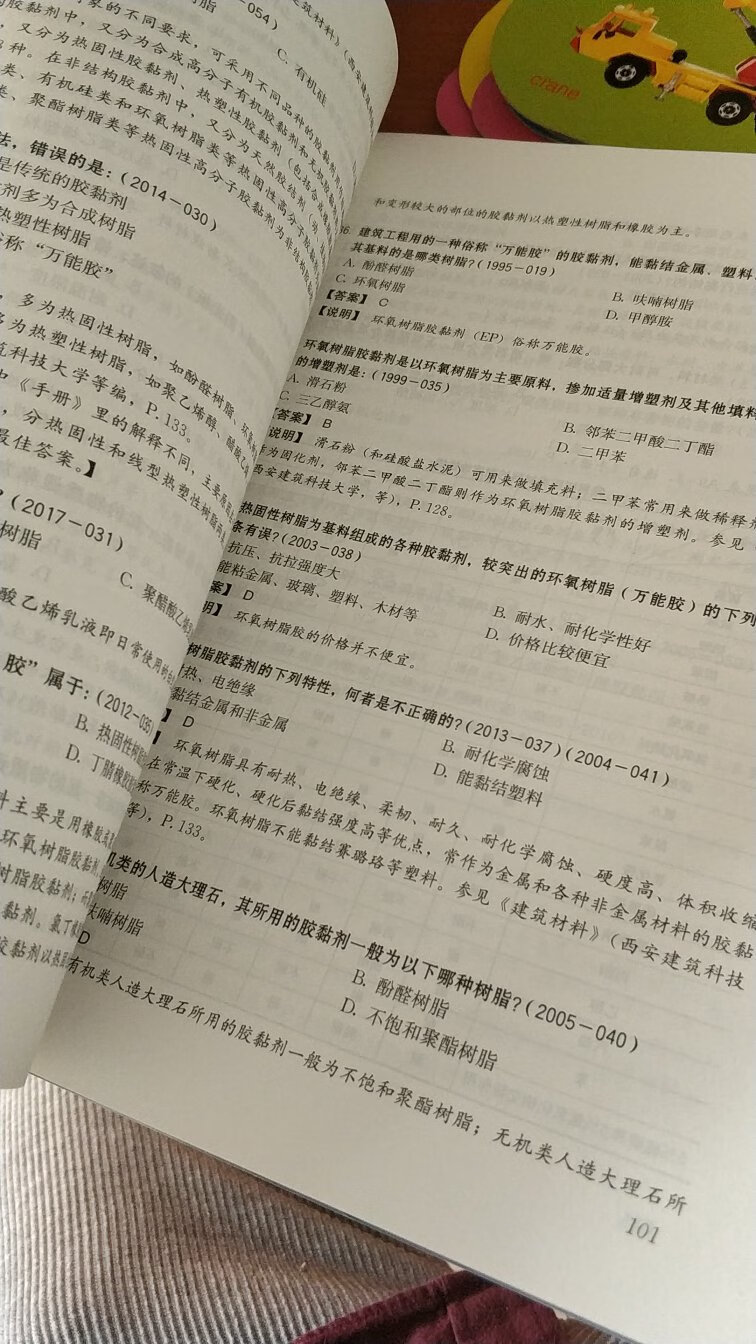 054)
C. 有机硅
的不同要求，可采用不同品种的胶黏剂
胶黏剂中，又分为合成高分子有机胶黏剂和无机胶黏剂
，又分为热固性胶黏剂、热塑性胶黏剂
种。在非结构胶黏剂中，又分为天然胶结剂
类、有机硅类和环氧树脂类等热固性高分子胶黏剂
类、聚酯树脂类等热固性高分子胶黏剂为非结构胶黏剂
法，错误的是：(2014－030)
是传统的胶黏剂
剂多为合成树脂
热塑性树脂
俗称“万能胶”
，多为热固性树脂，如酚醛树脂、环氧
多为热塑性树脂，如聚乙烯醇、醋酸乙烯
筑科技大学等编，P.133。
中《手册》里的解释不同，主要
，分热固性和线型热塑性树脂
最佳答案。】
？(2017－031)
树脂
C. 聚醋酸乙烯
酸乙烯乳液即日常使用的
胶”属于：(2012－035)
B. 热固性树脂
D. 丁腈橡胶
料主要是用橡胶或
环氧树脂胶黏剂
树脂胶黏剂；
黏剂。氯丁
胶黏剂以热固
和变形较大的部位的胶黏剂以热塑性树脂和橡胶为主。
36 建筑工程用的一种俗称“万能胶”的胶黏剂，能黏结金属、塑料、
其基料的是哪类树脂？(1995－019)
A. 酚醛树脂
B. 呋喃树脂
C. 环氧树脂
D. 甲醇胺
【答案】 C
【说明】 环氧树脂胶黏剂（EP）俗称万能胶。
环氧树脂胶黏剂是以环氧树脂为主要原料，掺加适量增塑剂及其他填料
的增塑剂是：(1999－035)
A. 滑石粉
B. 邻苯二甲酸二丁酯
C. 三乙醇氨
D. 二甲苯
【答案】 B
说明】 滑石粉（和硅酸盐水泥）可用来做填充料；二甲苯常用来做稀释
作为固化剂，邻苯二甲酸二丁酯则作为环氧树脂胶黏剂的增塑剂。参见
西安建筑科技大学，等），P.128。
热固性树脂为基料组成的各种胶黏剂，较突出的环氧树脂（万能胶）的下列
条有误？(2003－038)
抗压、抗拉强度大
B. 耐水、耐化学性好
能粘金属、玻璃、塑料、木材等
D. 价格比较便宜
案】 D
明】 环氧树脂胶的价格并不便宜。
树脂胶黏剂的下列特性，何者是不正确的？(2013－037)(2004－041)
耐热、电绝缘
B. 耐化学腐蚀
黏结金属和非金属
D. 能黏结塑料
】 D
】 环氧树脂具有耐热、电绝缘、柔韧、耐久、耐化学腐蚀、硬度高、体积收缩
在常温下硬化、硬化后黏结强度高等优点，常作为金属和各种非金属材料的胶黏
称万能胶。环氧树脂不能黏结赛璐珞等塑料。参见《建筑材料》（西安建筑科技
等），P.133。
机类的人造大理石，其所用的胶黏剂一般为以下哪种树脂？(2005－040)
树脂
B. 酚醛树脂
呋喃树脂
D. 不饱和聚酯树脂
D
有机类人造大理石所用的胶黏剂一般为不饱和聚酯树脂；无机类人造大理石所
101
crane